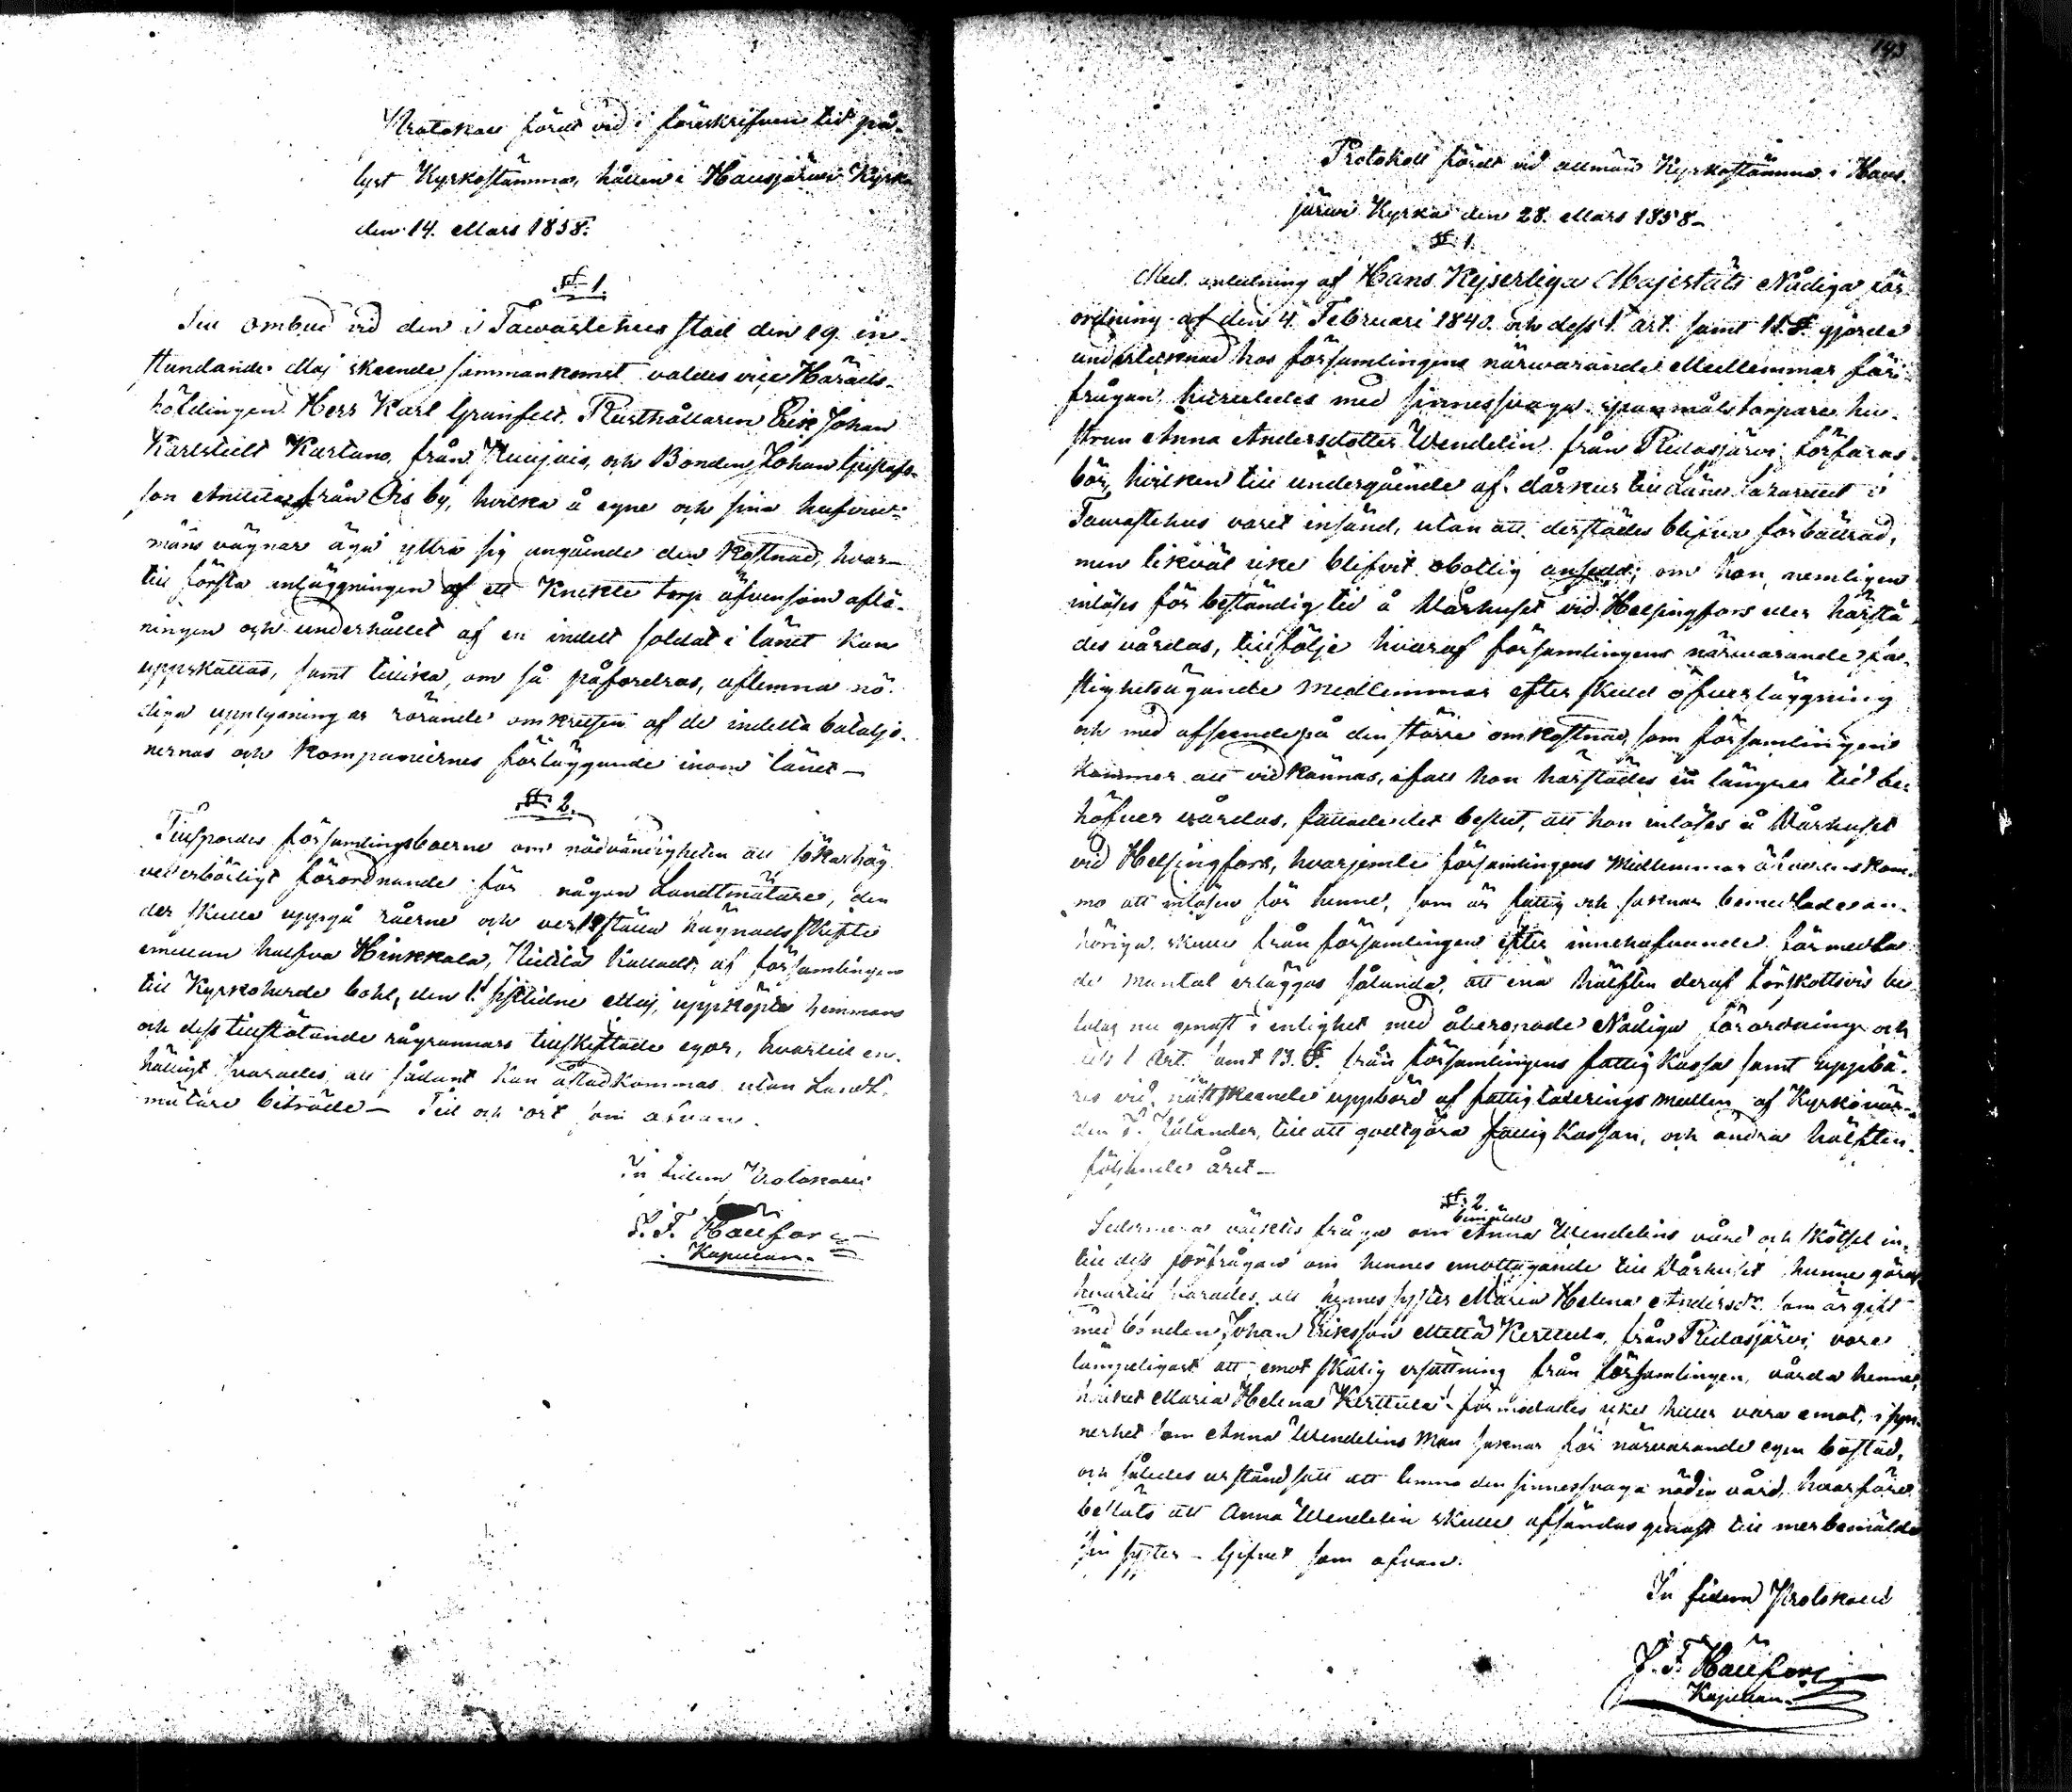 Protokoll fördt vid i föreskrifven tid på-
lyst Kyrkostämma, hållen i Hausjärwi Kyrka
den 14. Mars 1858.
§ 1.
Till ombud vid den i Tawastehus stad den 19. in-
stundande Maj skeende sammankomst valdes vice Härads-
höfdingen Herr Karl Granfelt, Rusthållaren Erik Johan
Karlstedt Kartano, från, och Bonden Johan Gustafs-
son Anttila från Ois by, hvilka å egne och sina hufvud-
mäns vägnar äga yttra sig angående den kostnad, hvar-
till första anläggningen af ett Knekte torp äfvensom aflö-
ningen och underhållet af en indelt soldat i länet kan
uppskattas, samt tillika, om så påfordras, aflemna nö-
diga upplysningar rörande omkretsen af de indelta bataljo-
nernas och kompaniernes förläggande inom länet—
§ 2.
Tillspordes församlingsboerne om nödvändigheten att söka hög
vederbörligt förordnande för någon Landtmätare, den
der skulle uppgå råerne och verkställa hägnadsskifte
emellan halfva Hinkkala, Kalladt, af församlingen
till Kyrkoherde bohl, den 1. sistlidne Maj, uppköpta hemmans
och dess tillstötande rågrannars tillskiftade egor, hvartill en-
hälligt svarades, att sådant kan åstadkommas utan Landt-
mätare biträde— Tid och ort som ofvan.
In fidem Protokolli
J. F. Hällfors
Kapellan.
143
Protokoll fördt vid allmän Kyrkostämma i Haus-
järwi Kyrka den 28. Mars 1858—
§ 1.
Med anledning af Hans Kejserliga Majestäts Nådiga för-
ordning af den 4. Februari 1840. och dess 1. art. samt 11. § gjorde
undertecknad hos församlingens närwarande Medlemmar för-
frågan huruledes med sinnessvaga spanmålstorpare hu-
strun Anna Andersdotter Wendelin från Ridasjärvi förfaras
bör, hvilken till undergående af dårkur till Läns lazarettet i
Tawastehus varit insänd, utan att derstädes blifva förbättrad,
men likväl icke blifvit obotlig ansedd; om hon nemligen
inlöses för beständig tid å Dårhuset vid Helsingfors eller härstä-
des vårdas, till följe hvaraf församlingens närwarande fa-
stighetsägande medlemmar efter skedd öfverläggning
och med afseende på den större omkostnad, som församlingen
kommer att vidkännas, ifall hon härstädes en längre tid be-
höfver wårdas, fattade det beslut, att hon inlöses å Dårhuset
vid Helsingfors, hvarjemte församlingens Medlemmar öfverenskom-
mo att inlösen för henne, som är fattig och saknar bemedlade an-
höriga skulle från församlingen efter innehafvande förmedla
de mantal erläggas sålunda, att ena hälften deraf förskottsvis be-
talas nu genast i enlighet med åberopade Nådiga förordning och
dess 1 Art. samt 13. §. från församlingens fattig Kassa samt uppbä-
res vid nästskeende uppbörd af fattigtaxeringsmedlen af Kyrkovär-
den till att godtgöra fattig Kassan, och andra hälften
följande året—
§ 2.
Sedermera väcktes fråga om bemälde Anna Wendelins vård och skötsel in-
till dess förfrågan om hennes emottagande till Dårhuset hunne göras
hvartill svarades, att hennes syster Maria Helena Andersdr. som är gift
med bonden Johan Eriksson Mattä Kerttula, från Ridasjärvi, vore
lämpeligast att, emot skälig ersättning från församlingen, vårda henne,
hvilket Maria Helena Kerttula förmodades icke heller vara emot, i syn-
nerhet som Anna Wendelins Man saknar för närwarande egen bostad,
och således ur stånd satt att lemna den sinnessvaga nödig vård, hvarföre
beslöts att Anna Wendelin skulle afsändas genast till mer bemälde
sin syster— Gifvet som ofvan.
In fidem Protokolli
J. F. Hällfors
Kapellan.